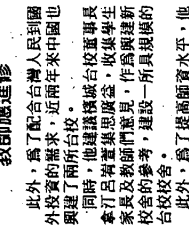 教師應進修
此外，為了配合台灣人民到國
外投資的需求，近兩年來中國也
興建了兩所台校。
同時，他建議檳城台校董事長
拿汀呂有萱集思廣益，收集學生
家長及教師們意見，作為興建新
校舍的參考，建設一所具規模的
台校校舍。
此外，為了提高師資水平，他